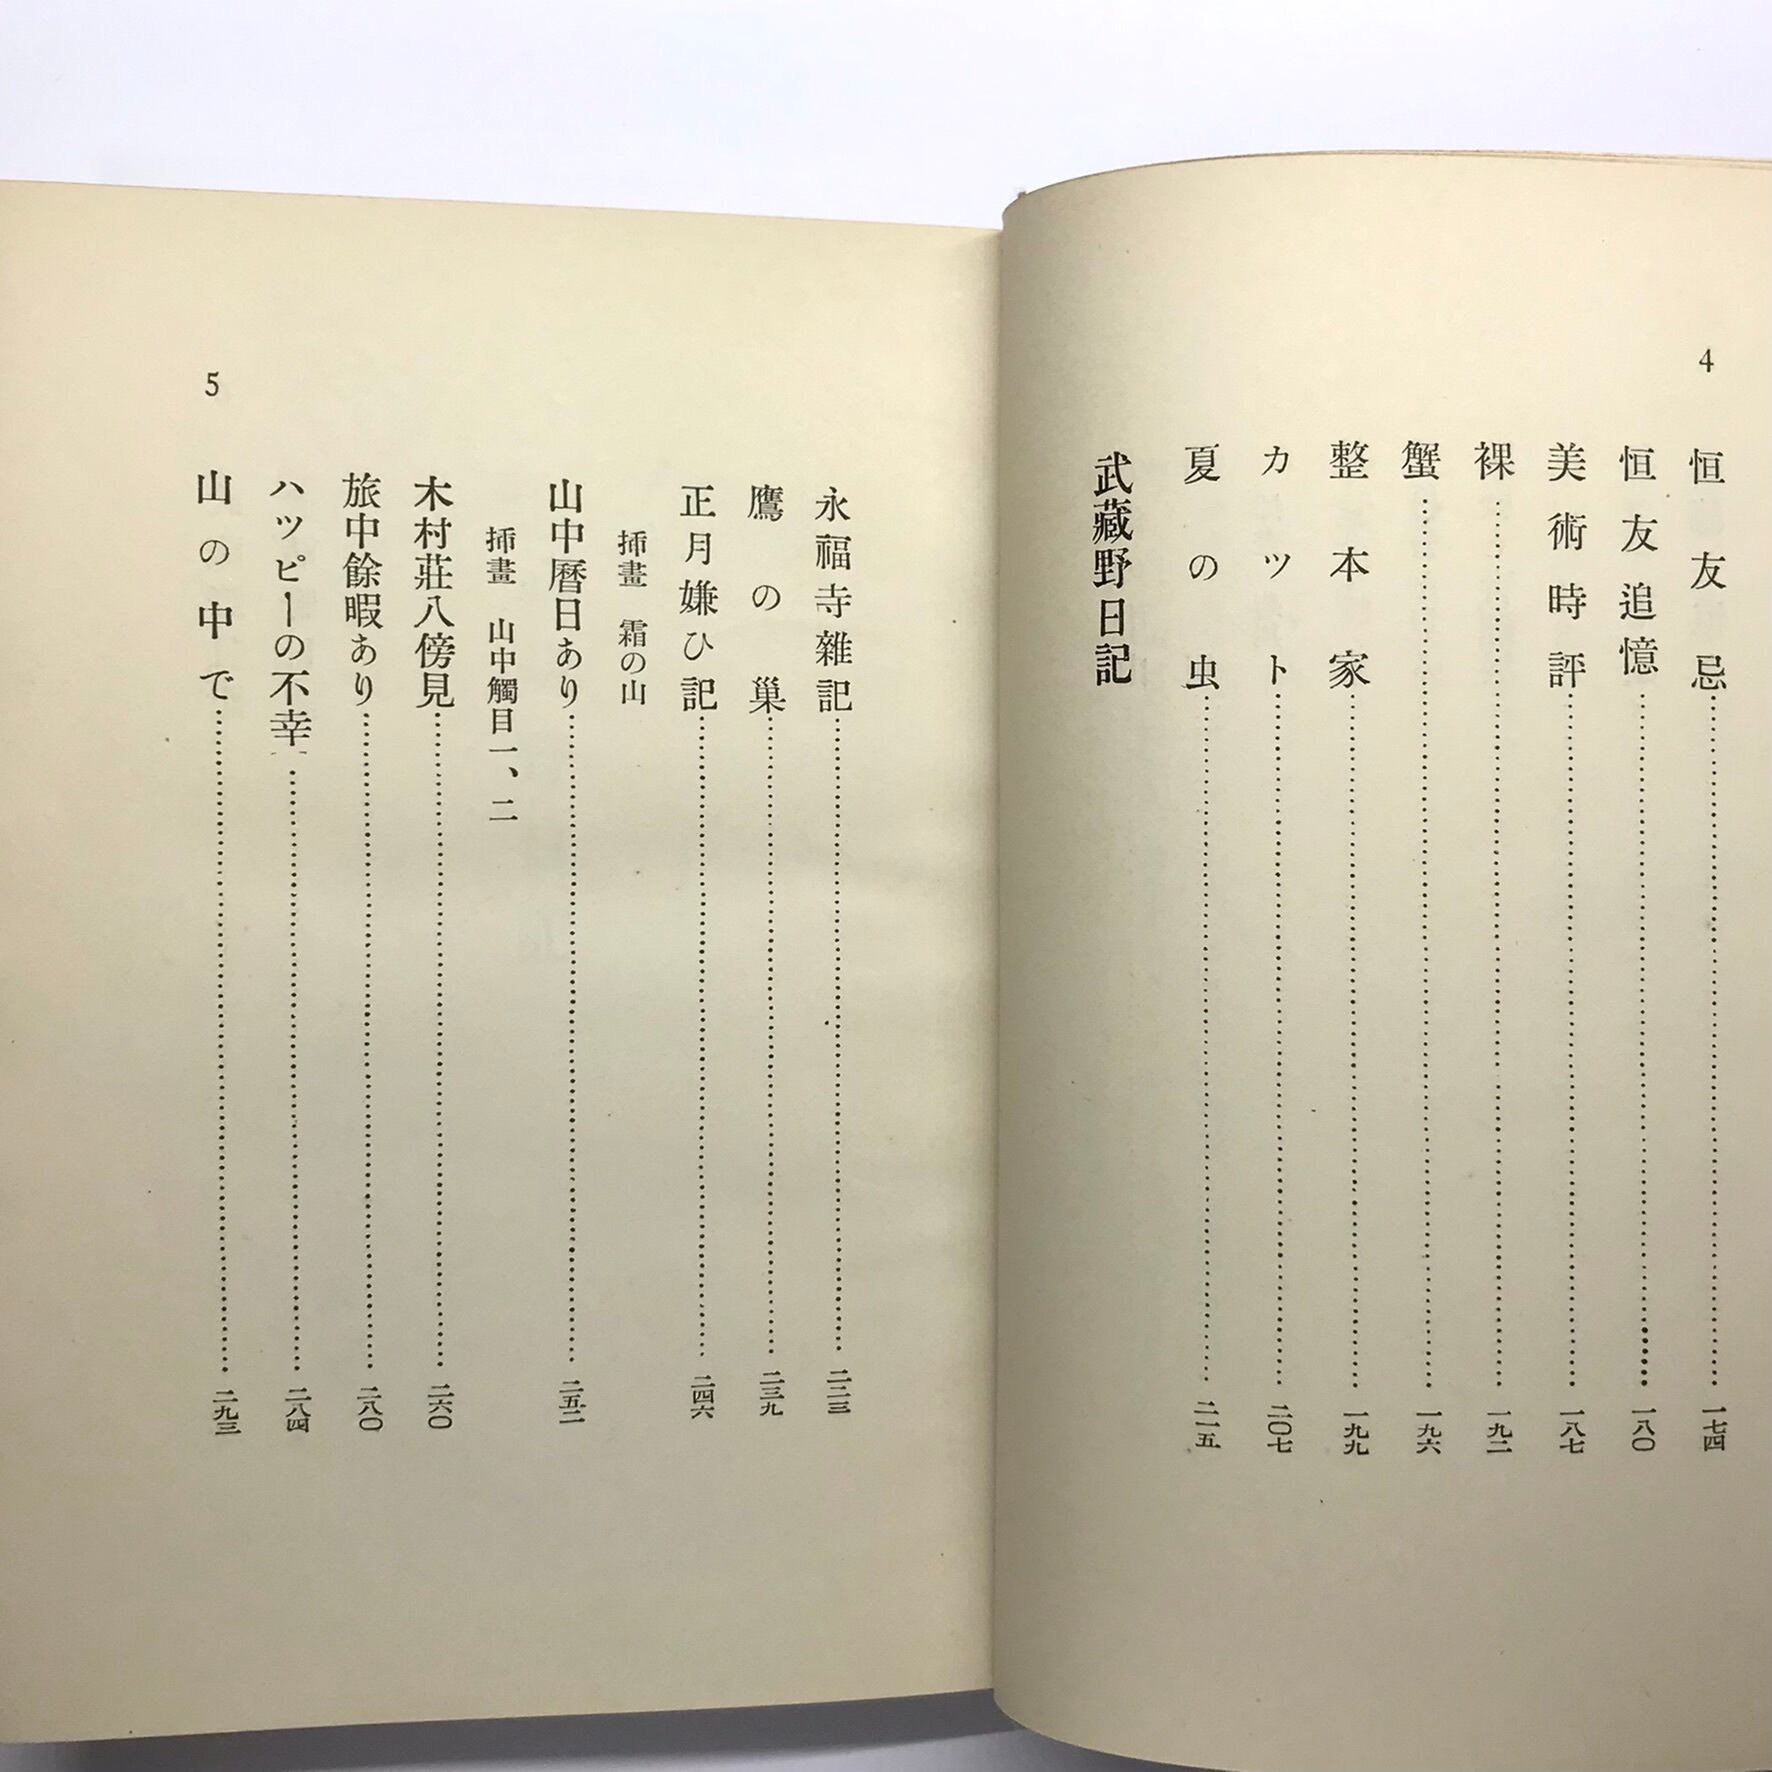 4
恒友忌……一七四
恒友追憶……一八〇
美術時評……一八七
裸……一九二
蟹……一九六
整本家……一九九
カット……二〇七
夏の虫……二一五
武藏野日記
永福寺雜記……二二三
鷹の巢……二三九
正月嫌ひ記……二四六
挿畫 霜の山
山中暦日あり……二五二
挿畫 山中觸目一、二
木村莊八傍見……二六〇
旅中餘暇あり……二八〇
ハツピーの不幸……二八四
山の中で……二九三
5